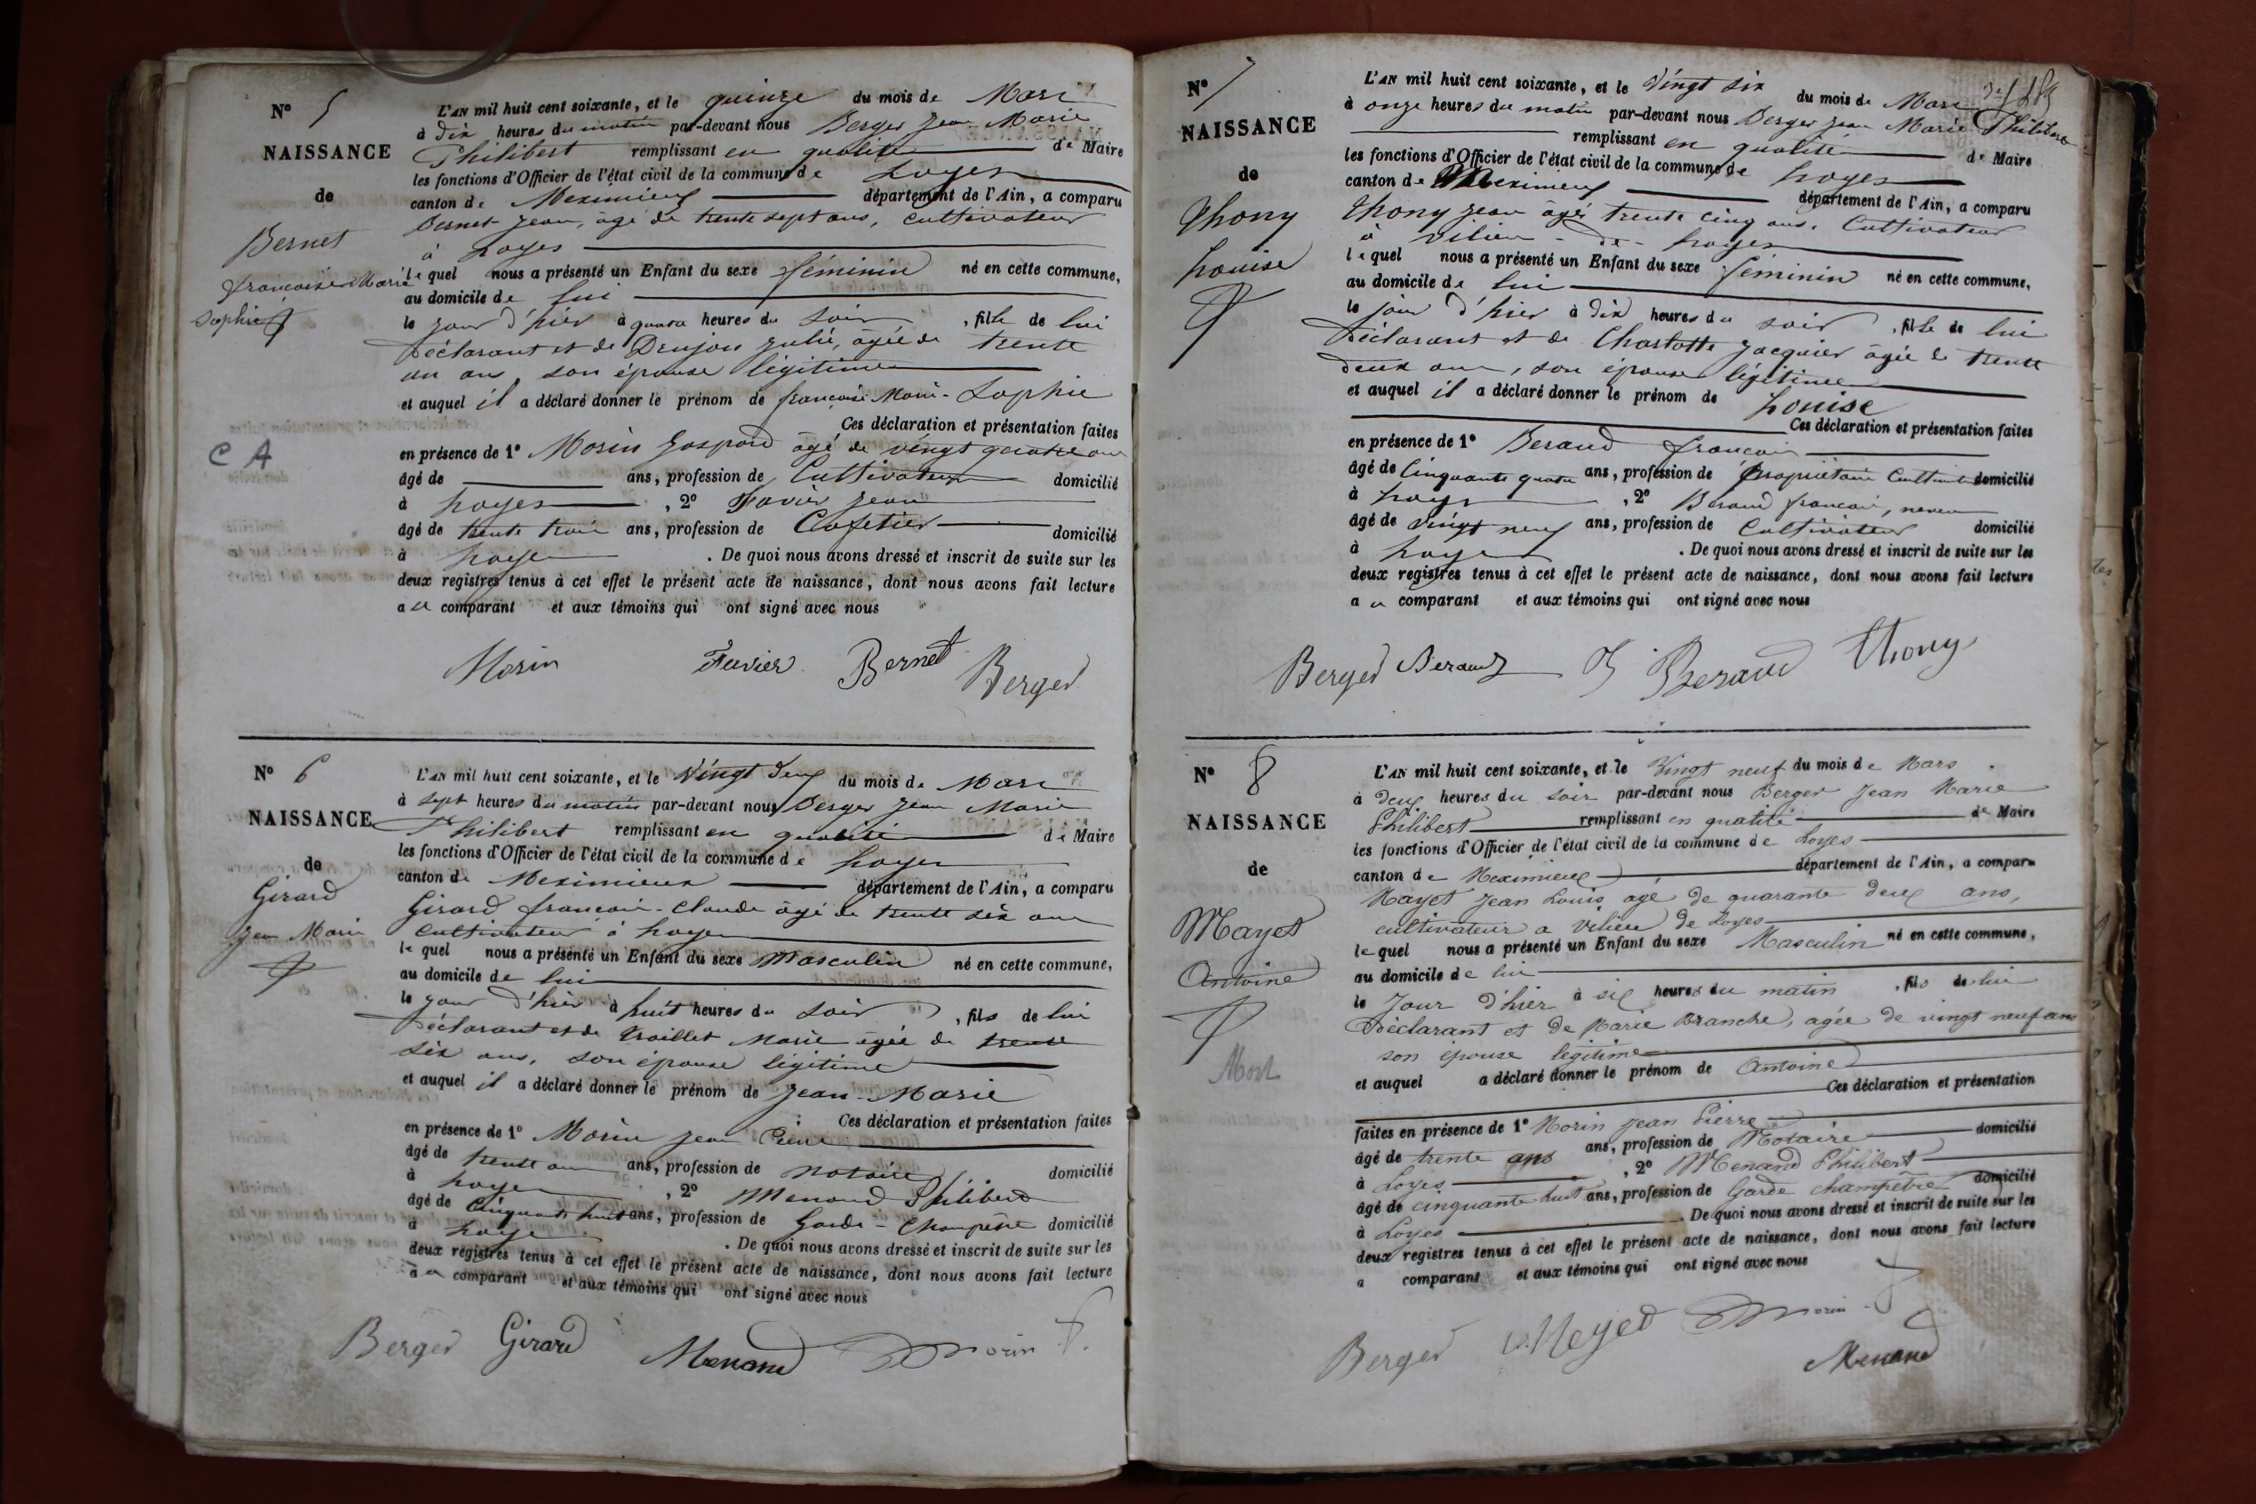 N° 5
NAISSANCE
de
Bernet
françoise Marie
Sophie
C A
L'AN mil huit cent soixante, et le quinze du mois de Mars
à dix heures du matin par-devant nous Berger Jean Marie
Philibert remplissant en qualité de Maire
les fonctions d'Officier de l'état civil de la commune de Loyes
canton de Meximieux département de l'Ain, a comparu
Bernet Jean, âgé de trente sept ans, Cultivateur
à Loyes
lequel nous a présenté un Enfant du sexe féminin né en cette commune,
au domicile de lui
le jour d'hier à quatre heures du soir, fille de lui
Déclarant et de Drujon Julie, âgée de trente
un ans, son épouse légitime
et auquel il a déclaré donner le prénom de françoise Marie-Sophie
Ces déclaration et présentation faites
en présence de 1° Morin Gaspard âgé de vingt quatre ans
âgé de ans, profession de Cultivateur domicilié
à Loyes, 2° Favier Jean
âgé de trente trois ans, profession de Cafetier domicilié
à Loyes. De quoi nous avons dressé et inscrit de suite sur les
deux registres tenus à cet effet le présent acte de naissance, dont nous avons fait lecture
au comparant et aux témoins qui ont signé avec nous
Morin Favier Bernet Berger
N° 6
NAISSANCE
de
Girard
Jean Marie
L'AN mil huit cent soixante, et le Vingt deux du mois de Mars
à sept heures du matin par-devant nous Berger Jean Marie
Philibert remplissant en qualité de Maire
les fonctions d'Officier de l'état civil de la commune de Loyes
canton de Meximieux département de l'Ain, a comparu
Girard françois-Claude âgé de trente six ans
Cultivateur à Loyes
lequel nous a présenté un Enfant du sexe Masculin né en cette commune,
au domicile de lui
le jour d'hier à huit heures du soir, fils de lui
Déclarant et de Marie âgée de trente
six ans, son épouse légitime
et auquel il a déclaré donner le prénom de Jean-Marie
Ces déclaration et présentation faites
en présence de 1° Morin Jean Pierre
âgé de trente ans ans, profession de notaire domicilié
à Loyes, 2° Menand Philibert
âgé de Cinquante huit ans, profession de Garde-Champêtre domicilié
à Loyes. De quoi nous avons dressé et inscrit de suite sur les
deux registres tenus à cet effet le présent acte de naissance, dont nous avons fait lecture
au comparant et aux témoins qui ont signé avec nous
Berger Girard Menand Morin
N° 7
NAISSANCE
de
Thony
Louise
L'AN mil huit cent soixante, et le Vingt six du mois de Mars
à onze heures du matin par-devant nous Berger Jean Marie Philibert
remplissant en qualité de Maire
les fonctions d'Officier de l'état civil de la commune de Loyes
canton de Meximieux département de l'Ain, a comparu
Thony Jean âgé trente cinq ans, Cultivateur
à Vilieu-de-Loyes
lequel nous a présenté un Enfant du sexe féminin né en cette commune,
au domicile de lui
le jour d'hier à dix heures du soir, fille de lui
Déclarant et de Charlotte Jacquier âgée de trente
deux ans, son épouse légitime
et auquel il a déclaré donner le prénom de Louise
Ces déclaration et présentation faites
en présence de 1° Beraud françois
âgé de Cinquante quatre ans, profession de Propriétaire Cultivateur domicilié
à Loyes, 2° Beraud françois, neveu
âgé de vingt neuf ans, profession de Cultivateur domicilié
à Loyes. De quoi nous avons dressé et inscrit de suite sur les
deux registres tenus à cet effet le présent acte de naissance, dont nous avons fait lecture
au comparant et aux témoins qui ont signé avec nous
Berger Beraud Beraud Thony
N° 8
NAISSANCE
de
Mayet
Antoine
Mort
L'AN mil huit cent soixante, et le Vingt neuf du mois de Mars
à deux heures du soir par-devant nous Berger Jean Marie
Philibert remplissant en qualité de Maire
les fonctions d'Officier de l'état civil de la commune de Loyes
canton de Meximieux département de l'Ain, a comparu
Mayet Jean Louis agé de quarante deux ans,
cultivateur a Vilieu de Loyes
lequel nous a présenté un Enfant du sexe Masculin né en cette commune,
au domicile de lui
le Jour d'hier à six heures du matin, fils de lui
Déclarant et de Marie Branche, agée de vingt neuf ans
son épouse légitime
et auquel a déclaré donner le prénom de Antoine
Ces déclaration et présentation
faites en présence de 1° Morin Jean Pierre
âgé de trente ans ans, profession de Notaire domicilié
à Loyes, 2° Menand Philibert
âgé de cinquante huit ans, profession de Garde champêtre domicilié
à Loyes. De quoi nous avons dressé et inscrit de suite sur les
deux registres tenus à cet effet le présent acte de naissance, dont nous avons fait lecture
a comparant et aux témoins qui ont signé avec nous
Berger Meyet Morin
Menand